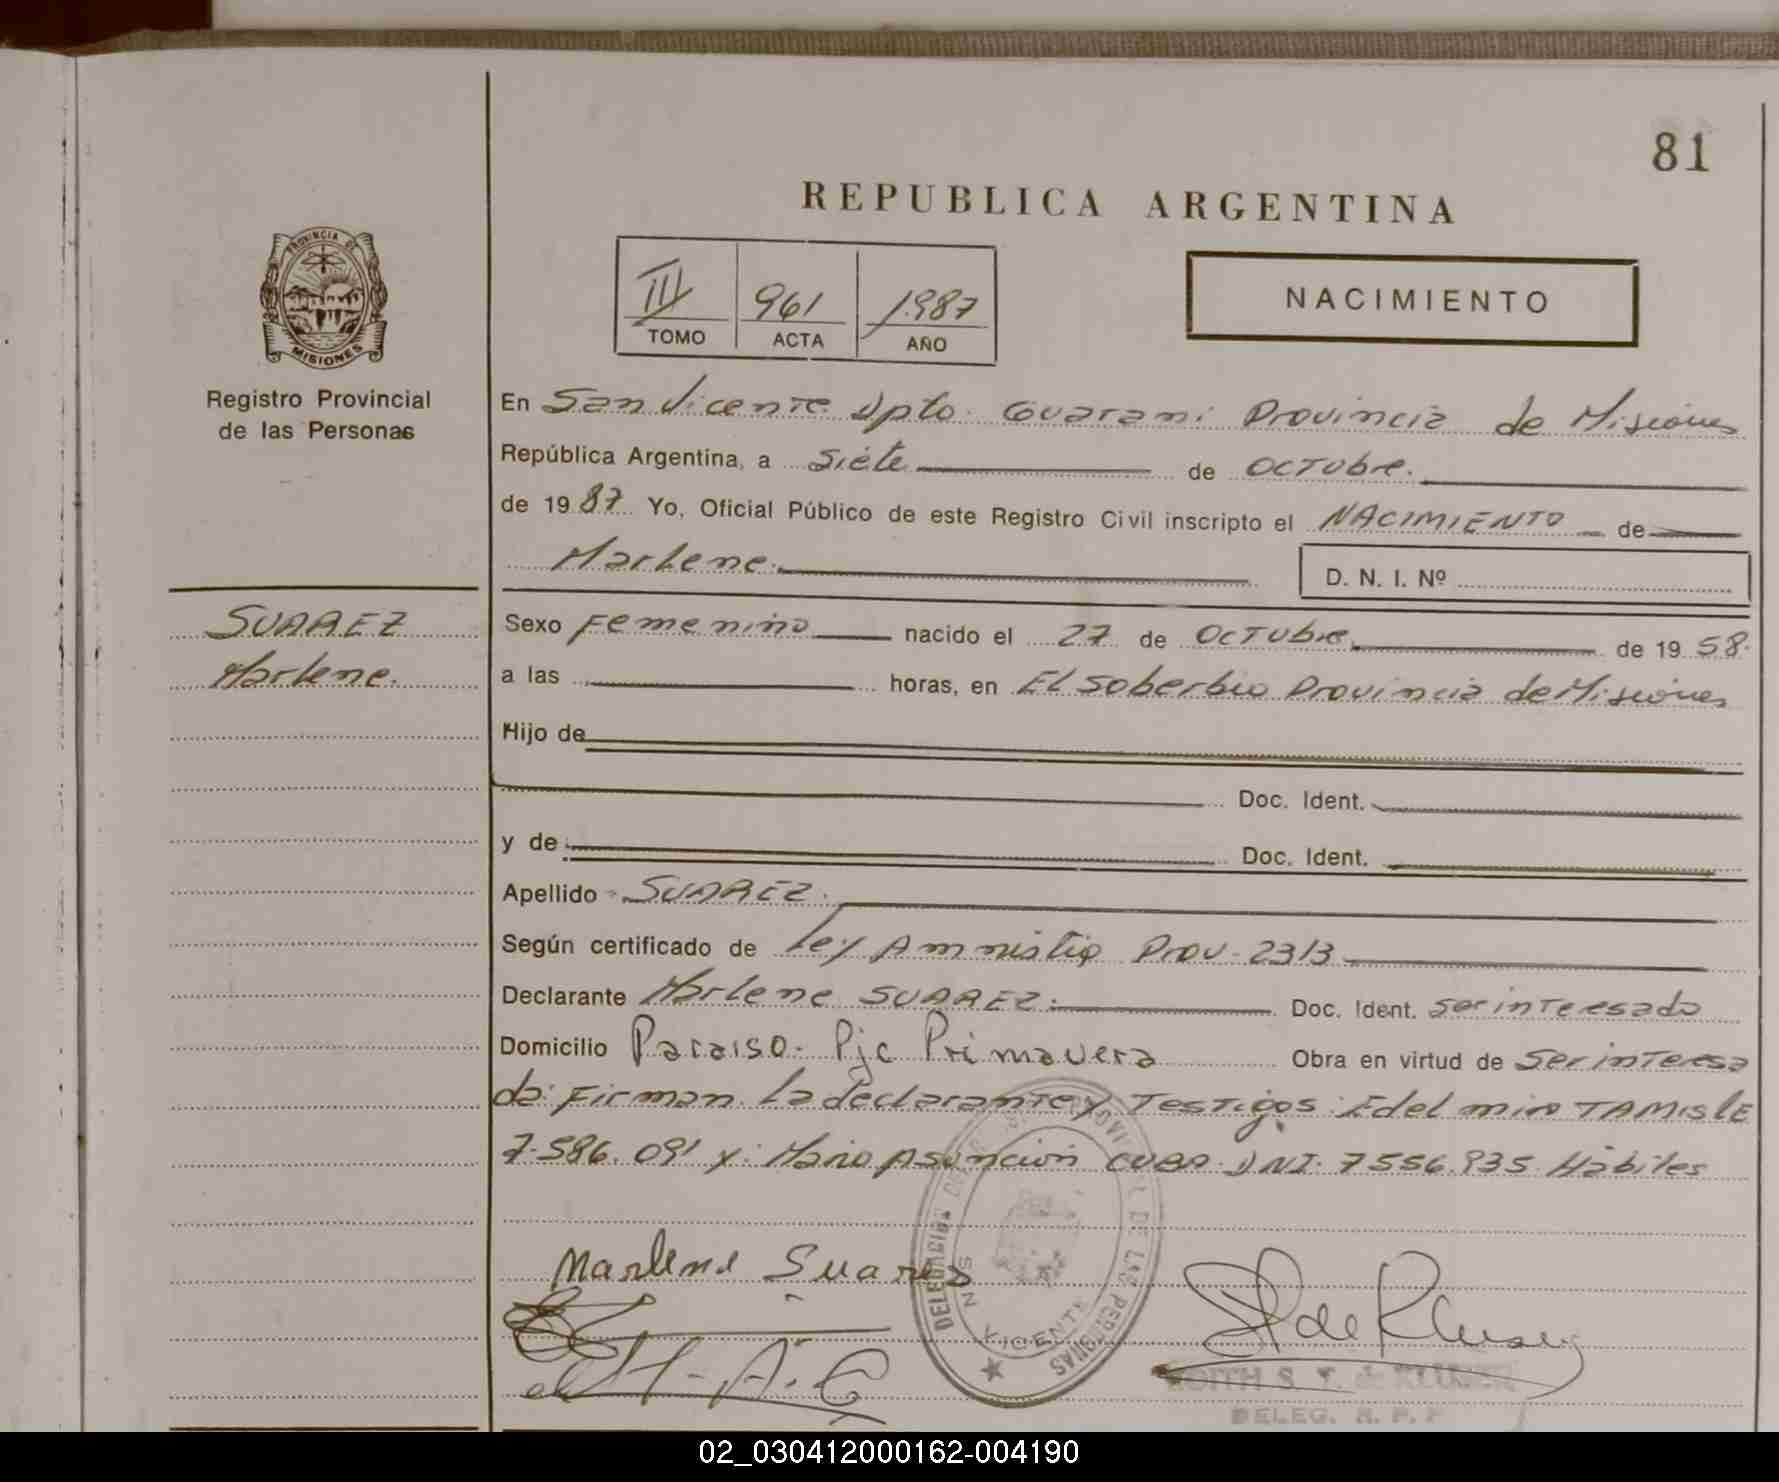 81
REPUBLICA ARGENTINA
PROVINCIA DE
MISIONES
Registro Provincial
de las Personas
III 961 1987
TOMO ACTA AÑO
NACIMIENTO
En San Vicente Dpto. Guarani Provincia de Misiones
República Argentina, a Siete de OCTUBRE.
de 1987 Yo, Oficial Público de este Registro Civil inscripto el NACIMIENTO de
Marlene.
D. N. I. Nº
SUAREZ
Marlene.
Sexo Femenino nacido el 27 de OCTUBRE de 1958.
a las horas, en El Soberbio Provincia de Misiones
Hijo de
Doc. Ident.
y de Doc. Ident.
Apellido SUAREZ.
Según certificado de Ley Amnistia Prov. 2313
Declarante Marlene SUAREZ. Doc. Ident. ser interesado
Domicilio Paraiso. Pje Primavera Obra en virtud de Ser interesa
da. Firman la declarante y Testigos: Edelmiro TAMISlE
7.586.091 y: Mario Asunción CUBA DNI. 7556.935 Hábiles
Marlene Suares
DELEGACION DE LAS PERSONAS
SAN VICENTE
EDITH S. T. de KLUSEN
DELEG. R. P. P
02_030412000162-004190